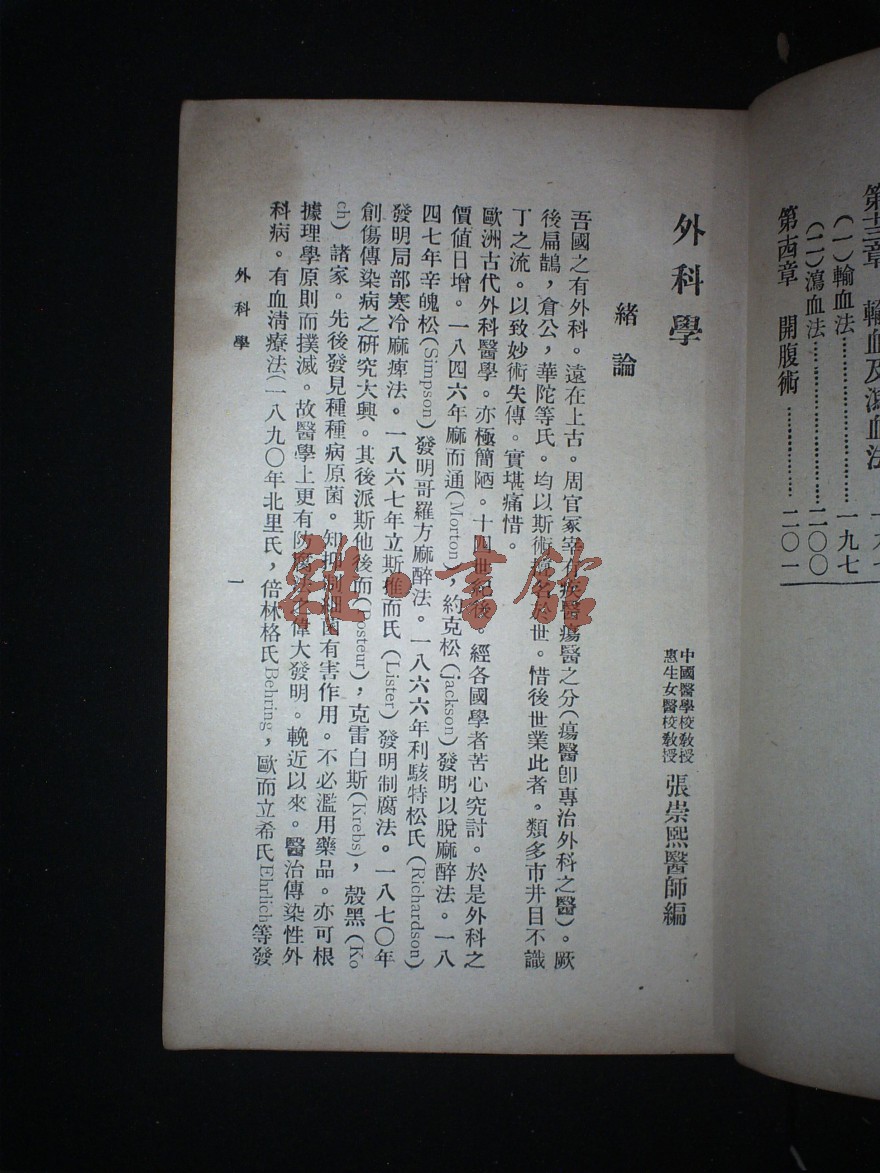 第十三章　輸血及瀉血法
(一)輸血法……一九七
(二)瀉血法……二〇〇
第十四章　開腹術……二〇一
外科學
中國醫學校敎授
惠生女醫校敎授
張崇熙醫師編
緒論
吾國之有外科。遠在上古。周官冢宰有疾醫瘍醫之分(瘍醫卽專治外科之醫)。厥
後扁鵲，倉公，華陀等氏。均以斯術著名於世。惜後世業此者。類多市井目不識
丁之流。以致妙術失傳。實堪痛惜。
歐洲古代外科醫學。亦極簡陋。十四世紀後。經各國學者苦心究討。於是外科之
價值日增。一八四六年麻而通(Morton)，約克松(jackson)發明以脫麻醉法。一八
四七年辛魄松(Simpson)發明哥羅方麻醉法。一八六六年利駭特松氏(Richardson)
發明局部寒冷麻痺法。一八六七年立斯推而氏(Lister)發明制腐法。一八七〇年
創傷傳染病之硏究大興。其後派斯他後而(Posteur)，克雷白斯(Krebs)，殼黑(Ko
ch)諸家。先後發見種種病原菌。知抑制細菌有害作用。不必濫用藥品。亦可根
據理學原則而撲滅。故醫學上更有防腐法之偉大發明。輓近以來。醫治傳染性外
科病。有血淸療法(一八九〇年北里氏，倍林格氏Behring，歐而立希氏Ehrlich等發
外科學
一
雅心書館